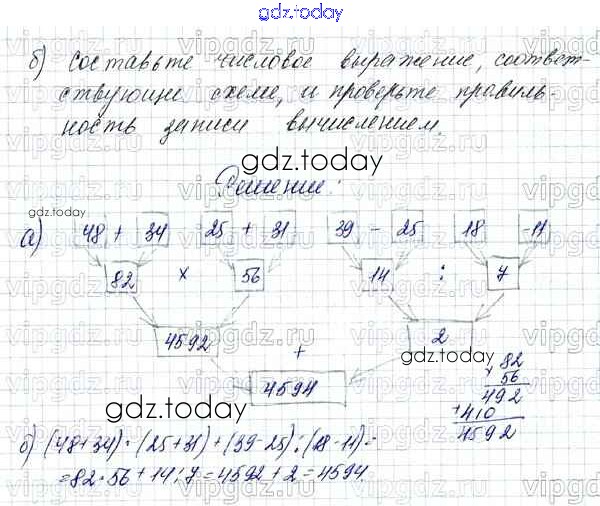 gdz.today
б) составьте числовое выражение, соответ-
ствующи схеме, и проверьте правиль-
ность записи вычислением.
gdz.today
Решение:
gdz.today
а) 48 + 34 25 + 31 39 - 25 18 -11
82 x 56 14 : 7
4592 + 2
gdz.today
4594
82
x 56
492
+410
4592
gdz.today
б) (48+34)·(25+31)+(39-25):(18-11)=
=82·56+14:7=4592+2=4594.